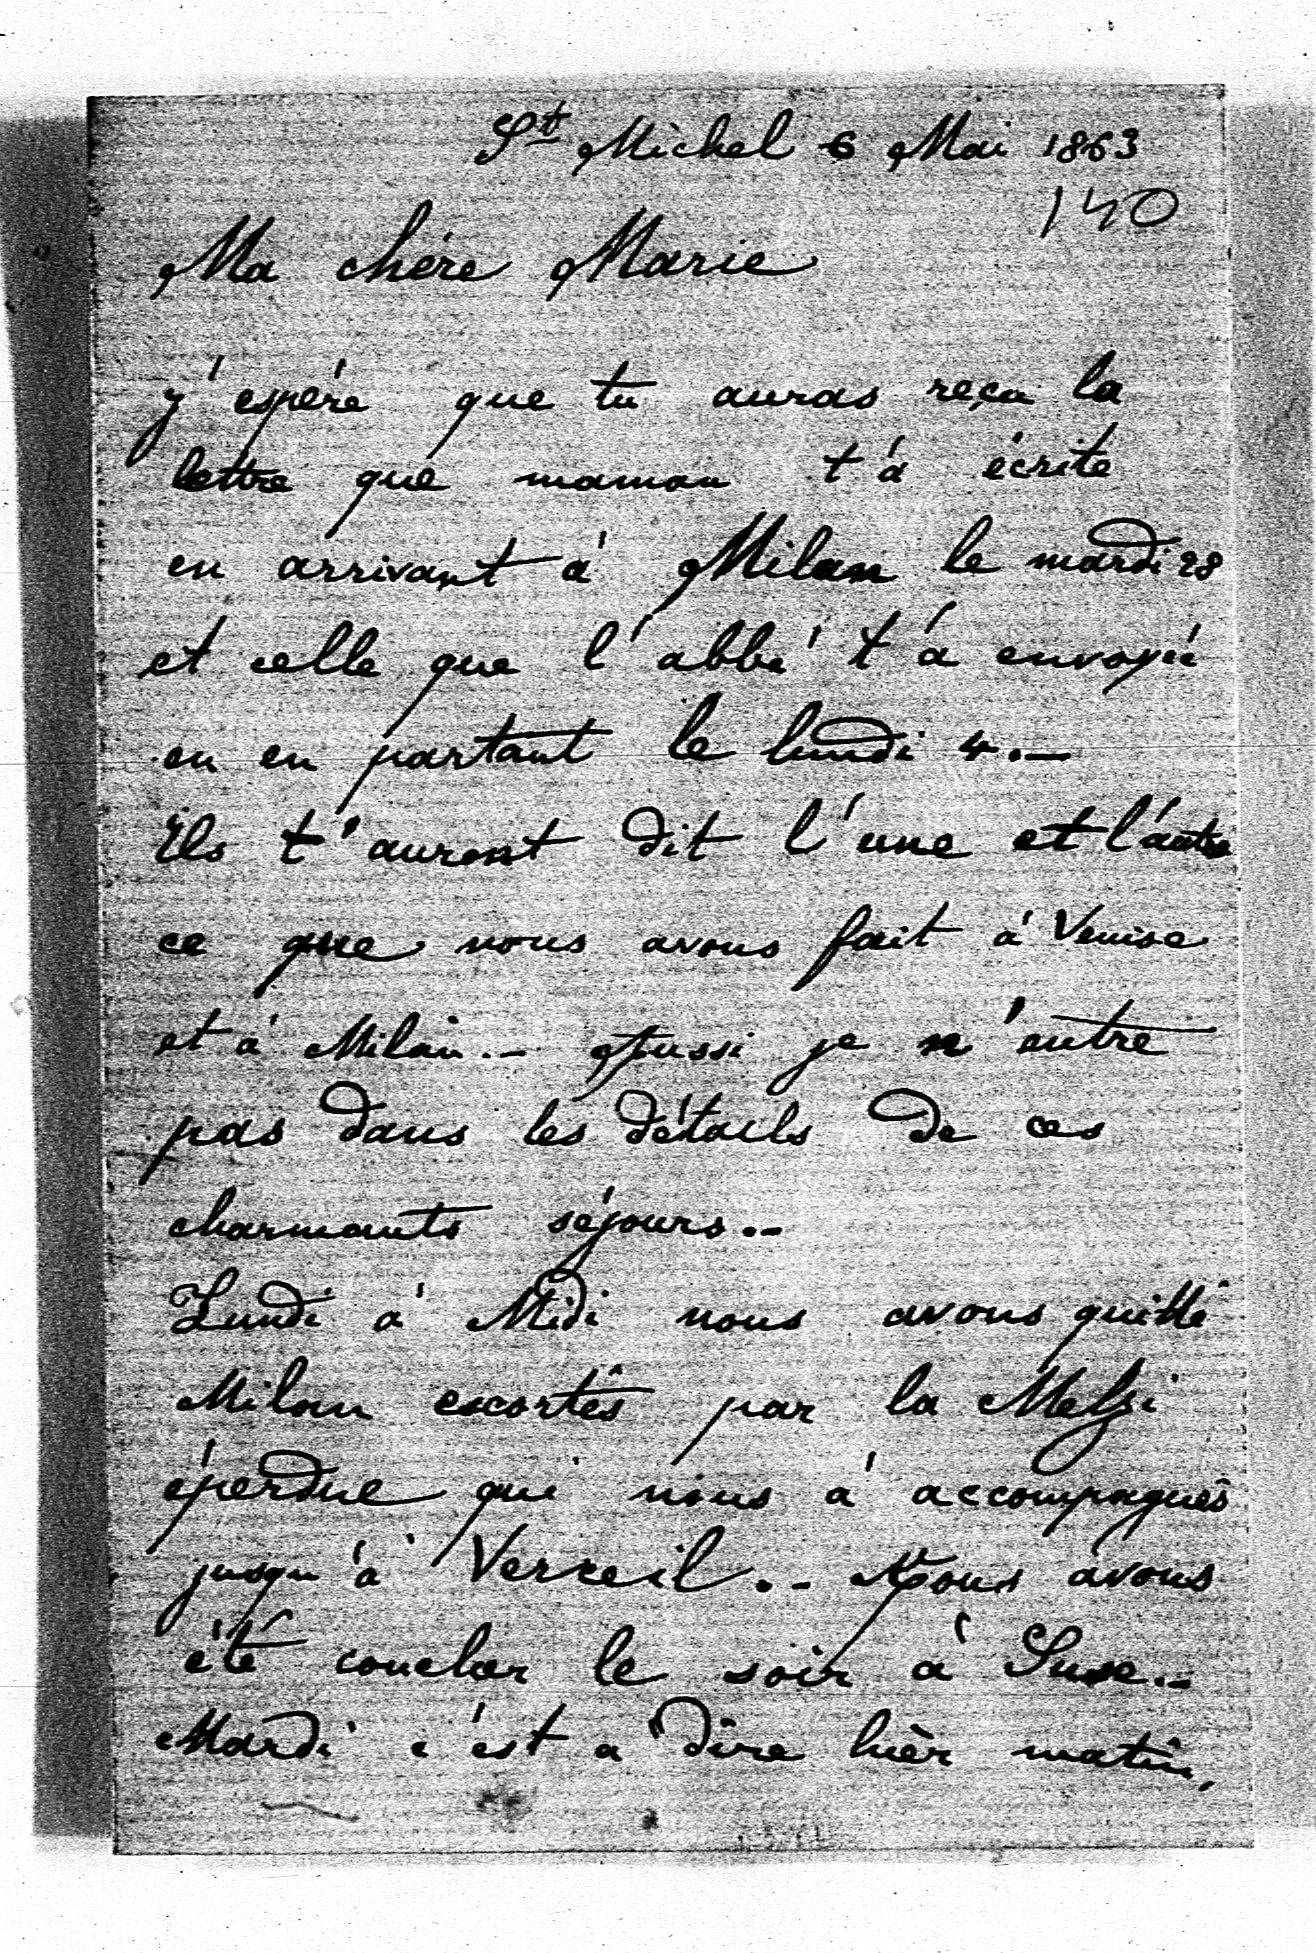 St Michel 6 Mai 1863
140
Ma chère Marie
j'espére que tu auras reçu la
lettre que maman t'a écrite
en arrivant à Milan le mardi 28
et celle que l'abbé t'a envoyée
en en partant le lundi 4. —
Ils t'auront dit l'une et l'autre
ce que nous avons fait à Venise
et à Milan. — Aussi je n'entre
pas dans les détails de ces
charmants séjours. —
Lundi à Midi nous avons quitté
Milan escortés par la Melzi
éperdue qui nous à accompagnés
jusqu'à Verceil. — Nous avons
été coucher le soir à Suse. —
Mardi c'est à dire hièr matin,